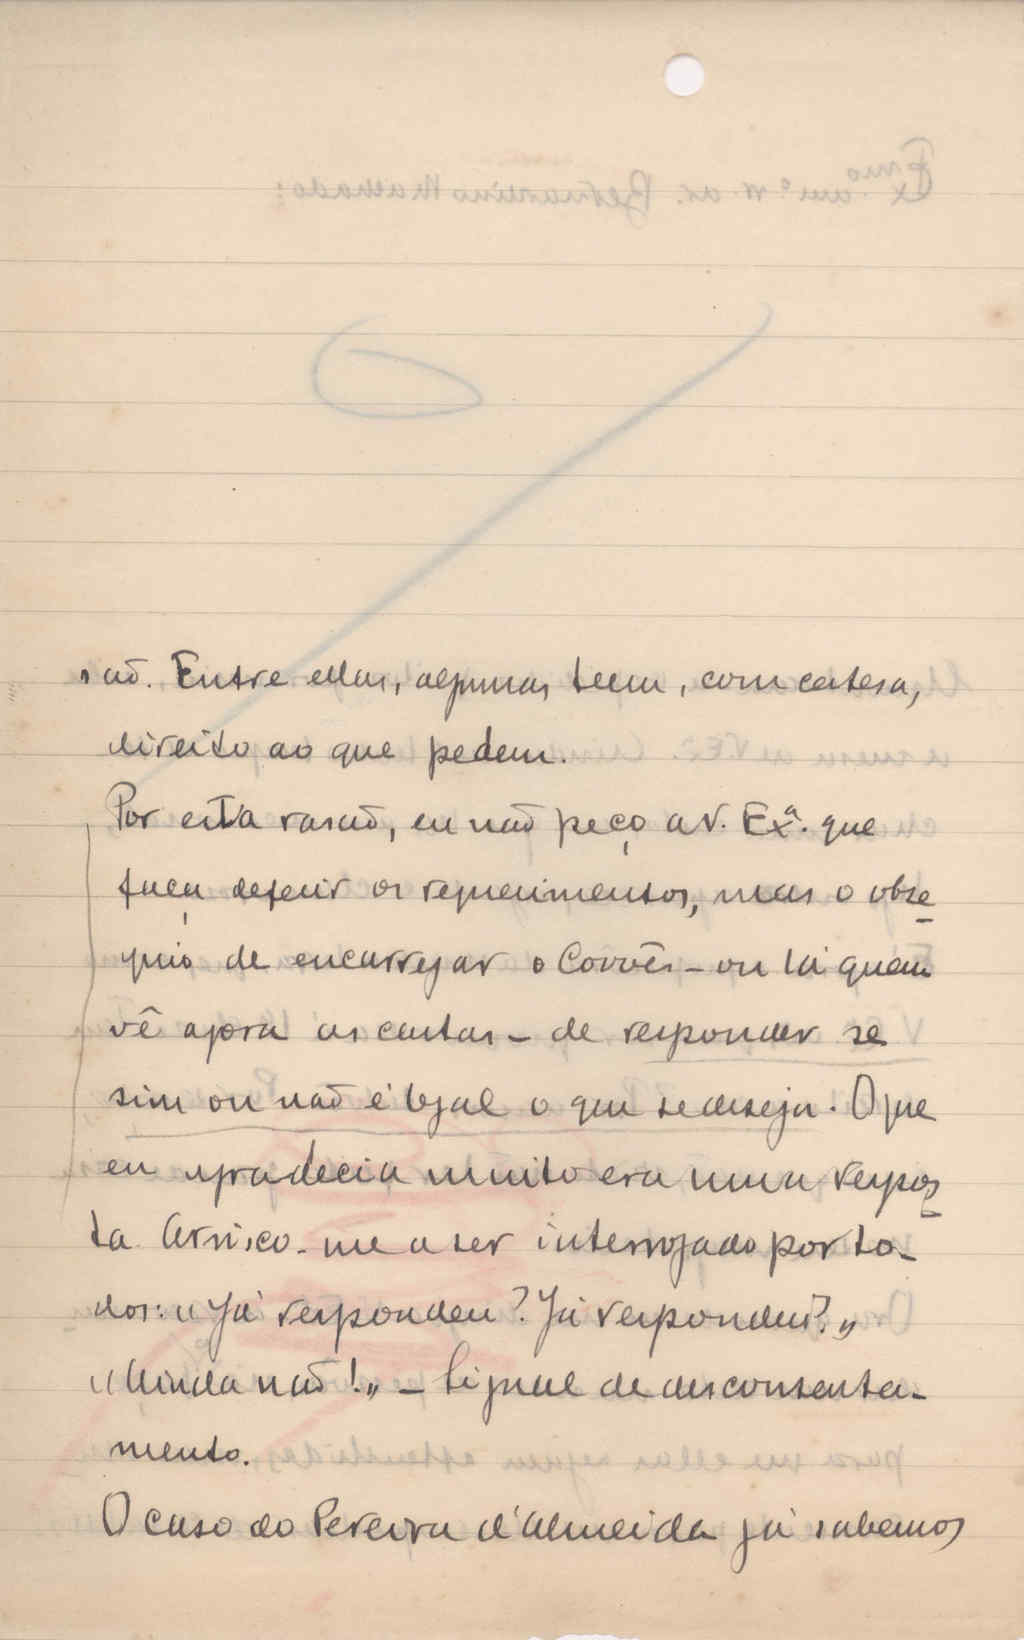 são. Entre ellas, algumas teem, com certesa,
direito ao que pedem.
Por esta rasão, eu não peço a V. Exª. que
faça deferir os requerimentos, mas o obse
quio de encarregar o Corvês - ou lá quem
vê agora as cartas - de responder se
sim ou não é legal o que se deseja. O que
eu agradecia muito era uma respos
ta. Arrisco-me a ser interrogado por to-
dos: "Já respondeu? Já respondeu?"
"Ainda não!" - Signal de descontenta-
mento.
O caso do Pereira d'Almeida já sabemos